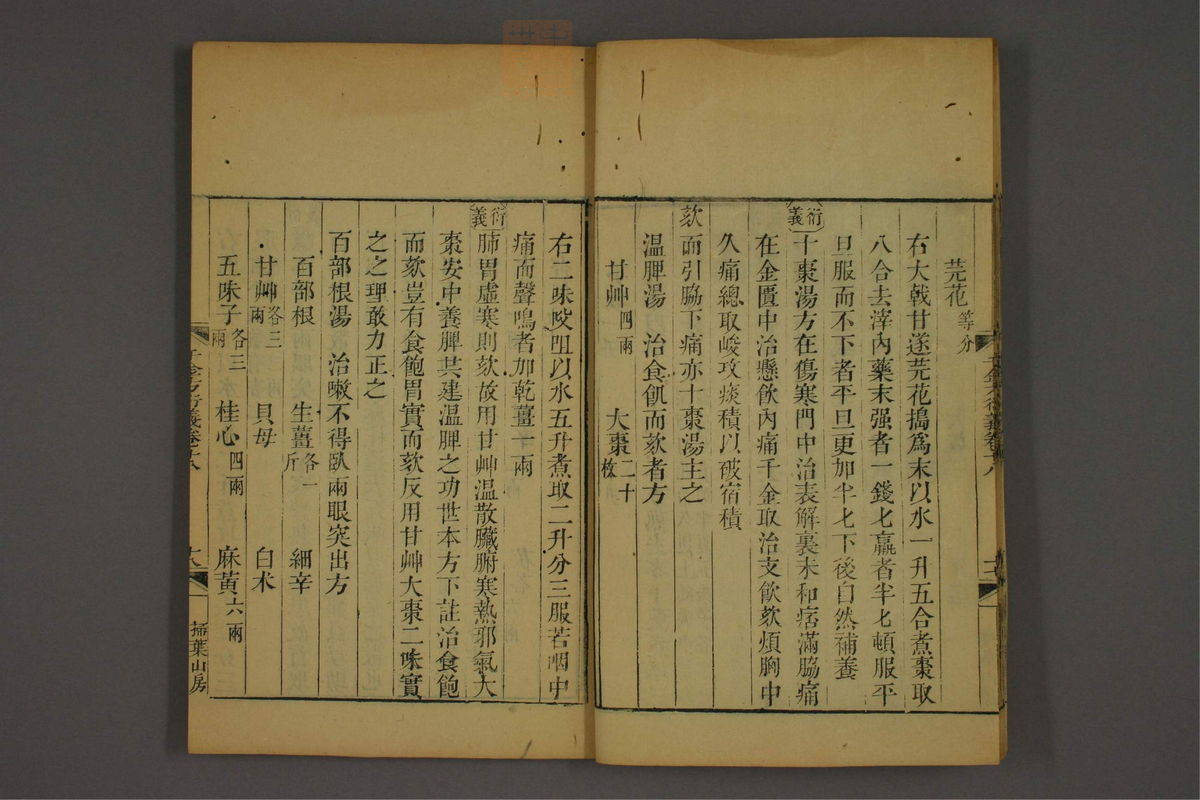 芫花等分
右大戟甘遂芫花搗爲末以水一升五合煮棗取
八合去滓內藥末强者一錢匕羸者半匕頓服平
旦服而不下者平旦更加半匕下後自然補養
衍義
十棗湯方在傷寒門中治表解裏未和痞滿脇痛
在金匱中治懸飲內痛千金取治支飲欬煩胸中
久痛總取峻攻痰積以破宿積
欬而引脇下痛亦十棗湯主之
溫脾湯 治食飢而欬者方
甘艸四兩 大棗二十枚
右二味㕮咀以水五升煮取二升分三服若咽中
痛而聲鳴者加乾薑一兩
衍義
肺胃虛寒則欬故用甘艸溫散臟腑寒熱邪氣大
棗安中養脾共建溫脾之功世本方下註治食飽
而欬豈有食飽胃實而欬反用甘艸大棗二味實
之之理敢力正之
百部根湯 治嗽不得臥兩眼突出方
百部根 生薑各一斤 細辛
甘艸各三兩 貝母 白朮
五味子各三兩 桂心四兩 麻黃六兩
千金方衍義卷十八
掃葉山房